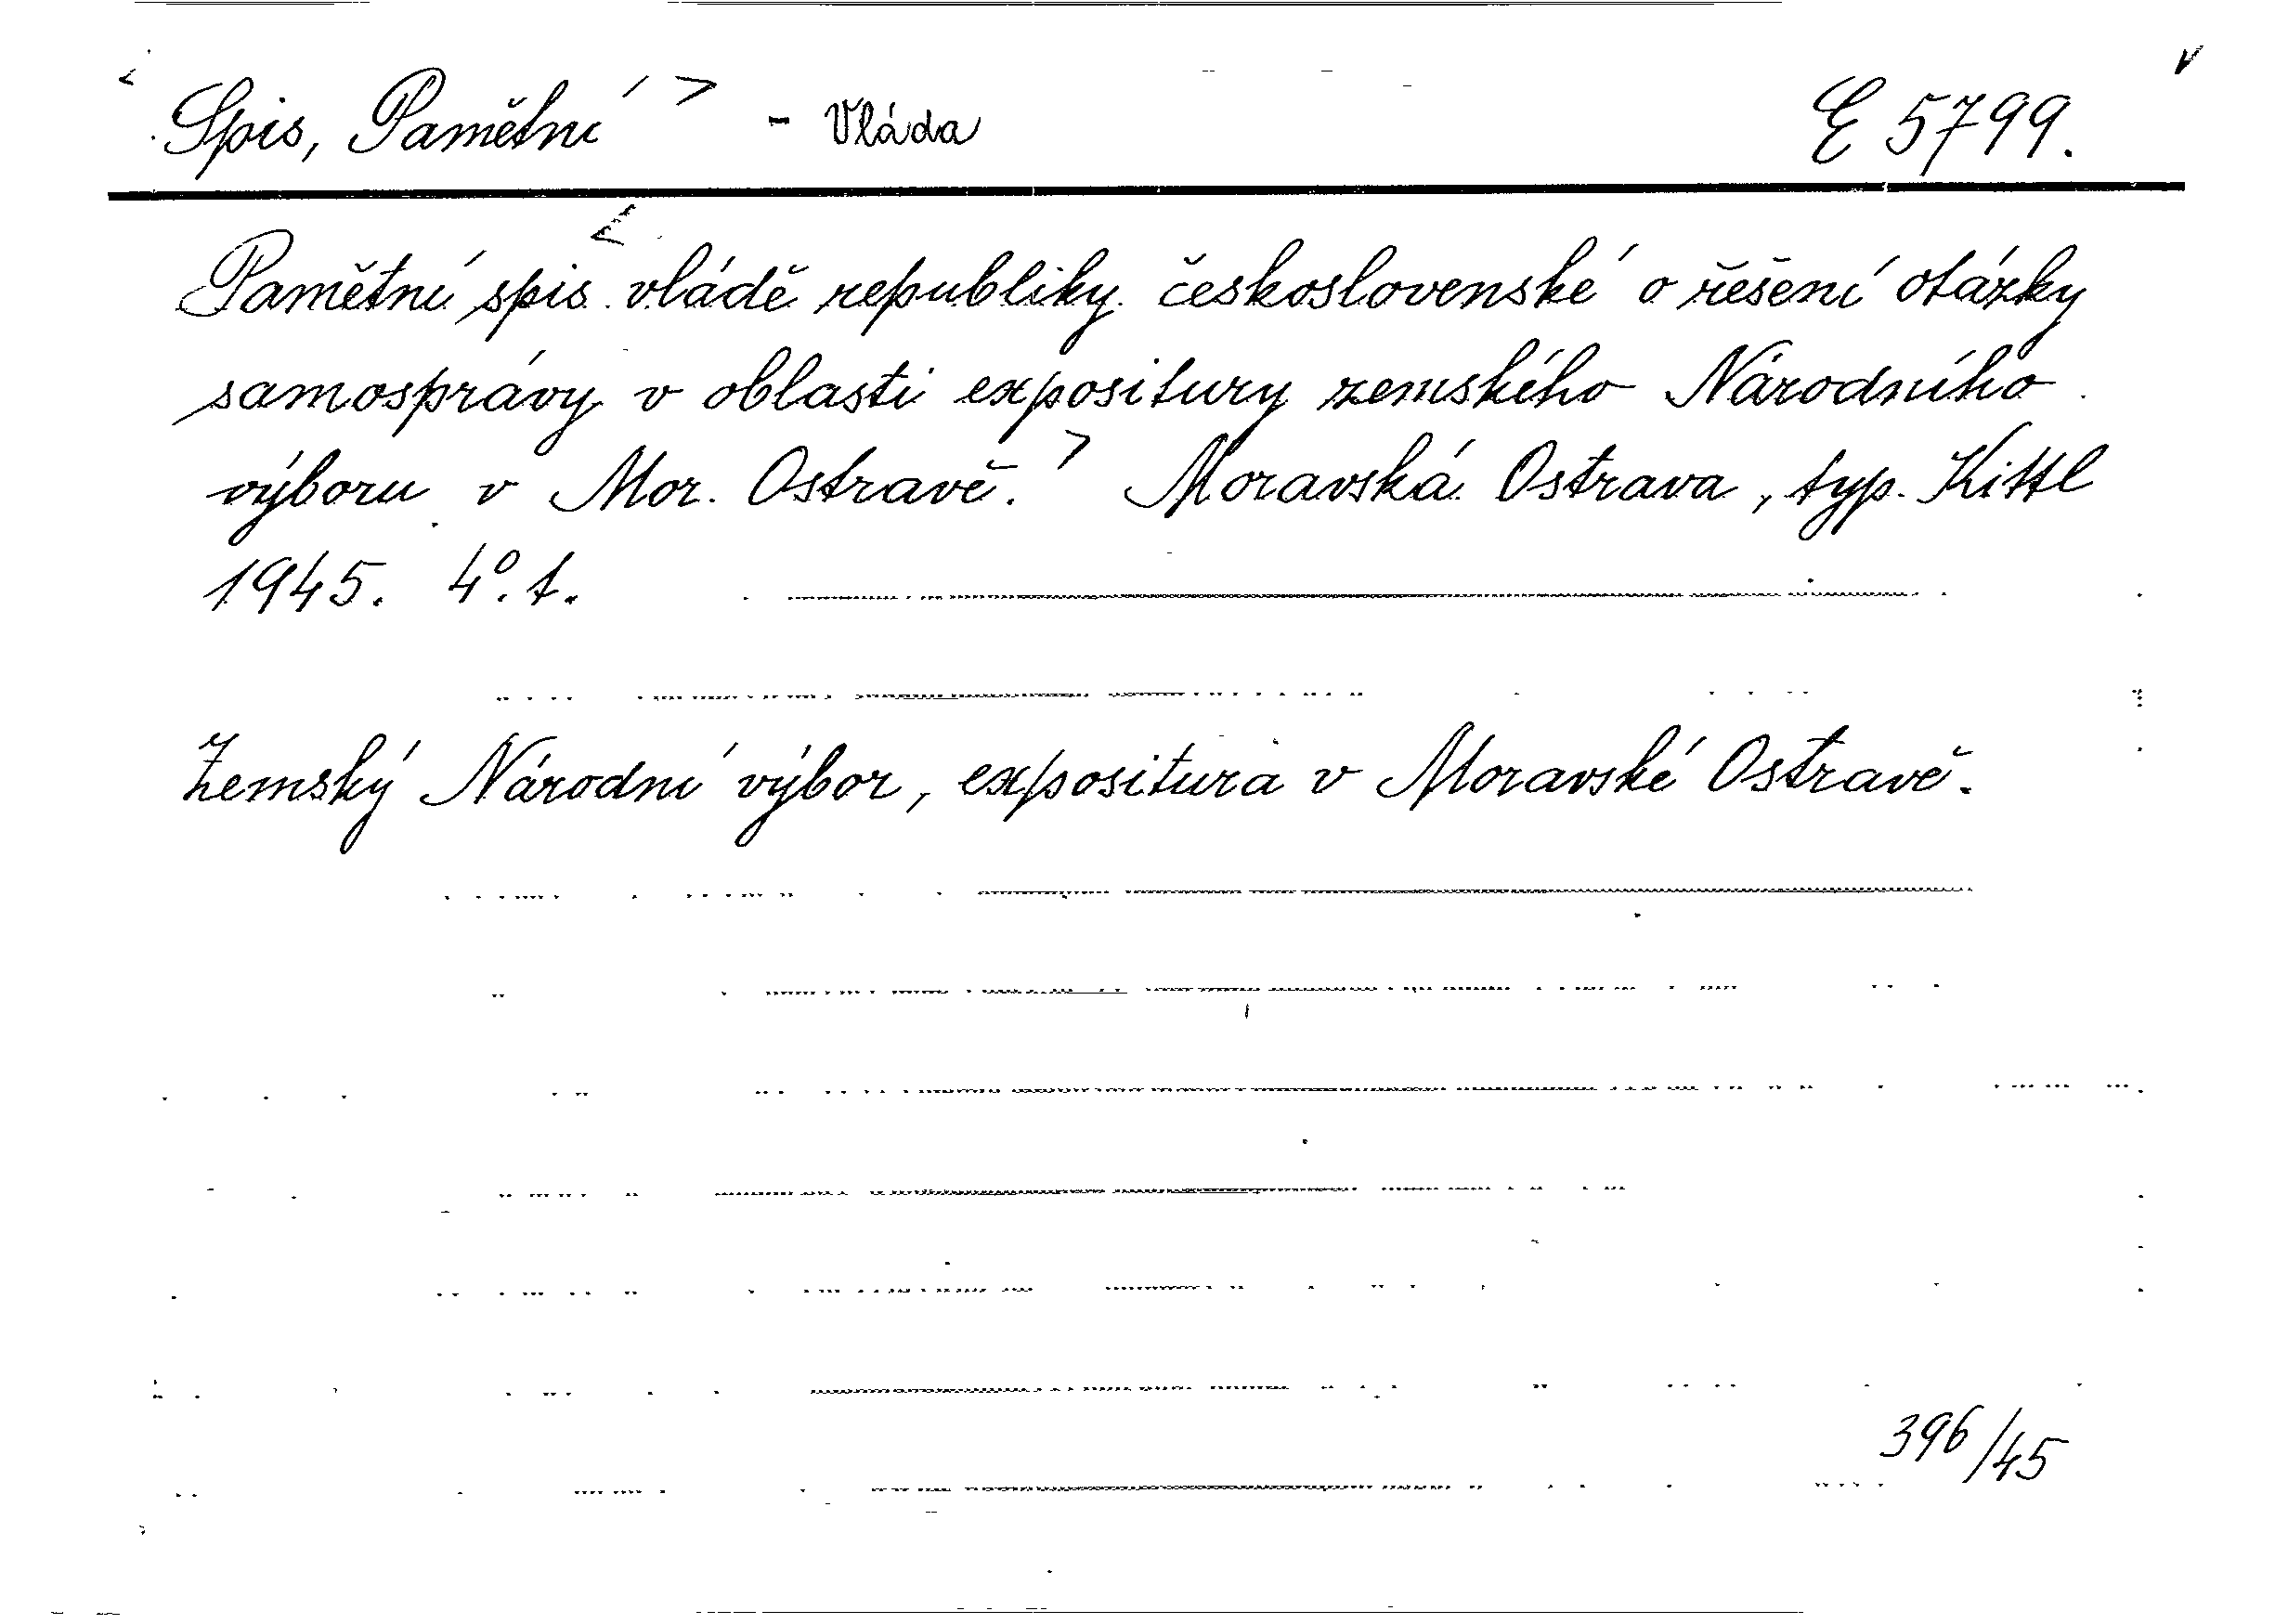 <Spis, Pamětní> - Vláda E 5799.
Pamětní spis <vládě republiky československé o řešení otázky
samosprávy v oblasti expositury zemského Národního
výboru v Mor. Ostravě.> Moravská Ostrava, typ. Kittl
1945. 4°. t.
Zemský Národní výbor, expositura v Moravské Ostravě.
396/45